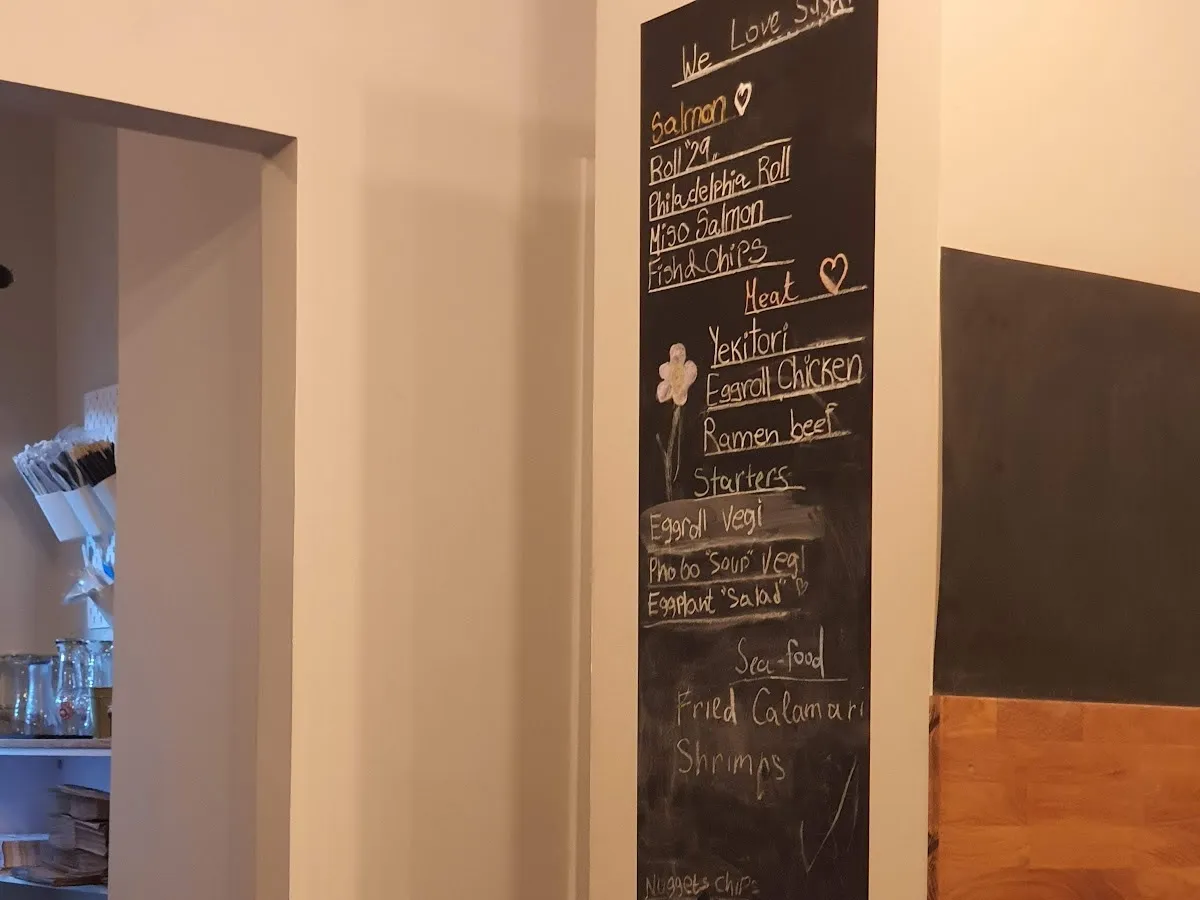 We Love Sushi
Salmon
Roll "29"
Philadelphia Roll
Miso Salmon
Fish & Chips
Meat
Yekitori
Eggroll Chicken
Ramen beef
Starters
Eggroll Vegi
Pho bo "Soup" Vegi
Eggplant "Salad"
Sea-food
Fried Calamari
Shrimps
Nuggets Chips